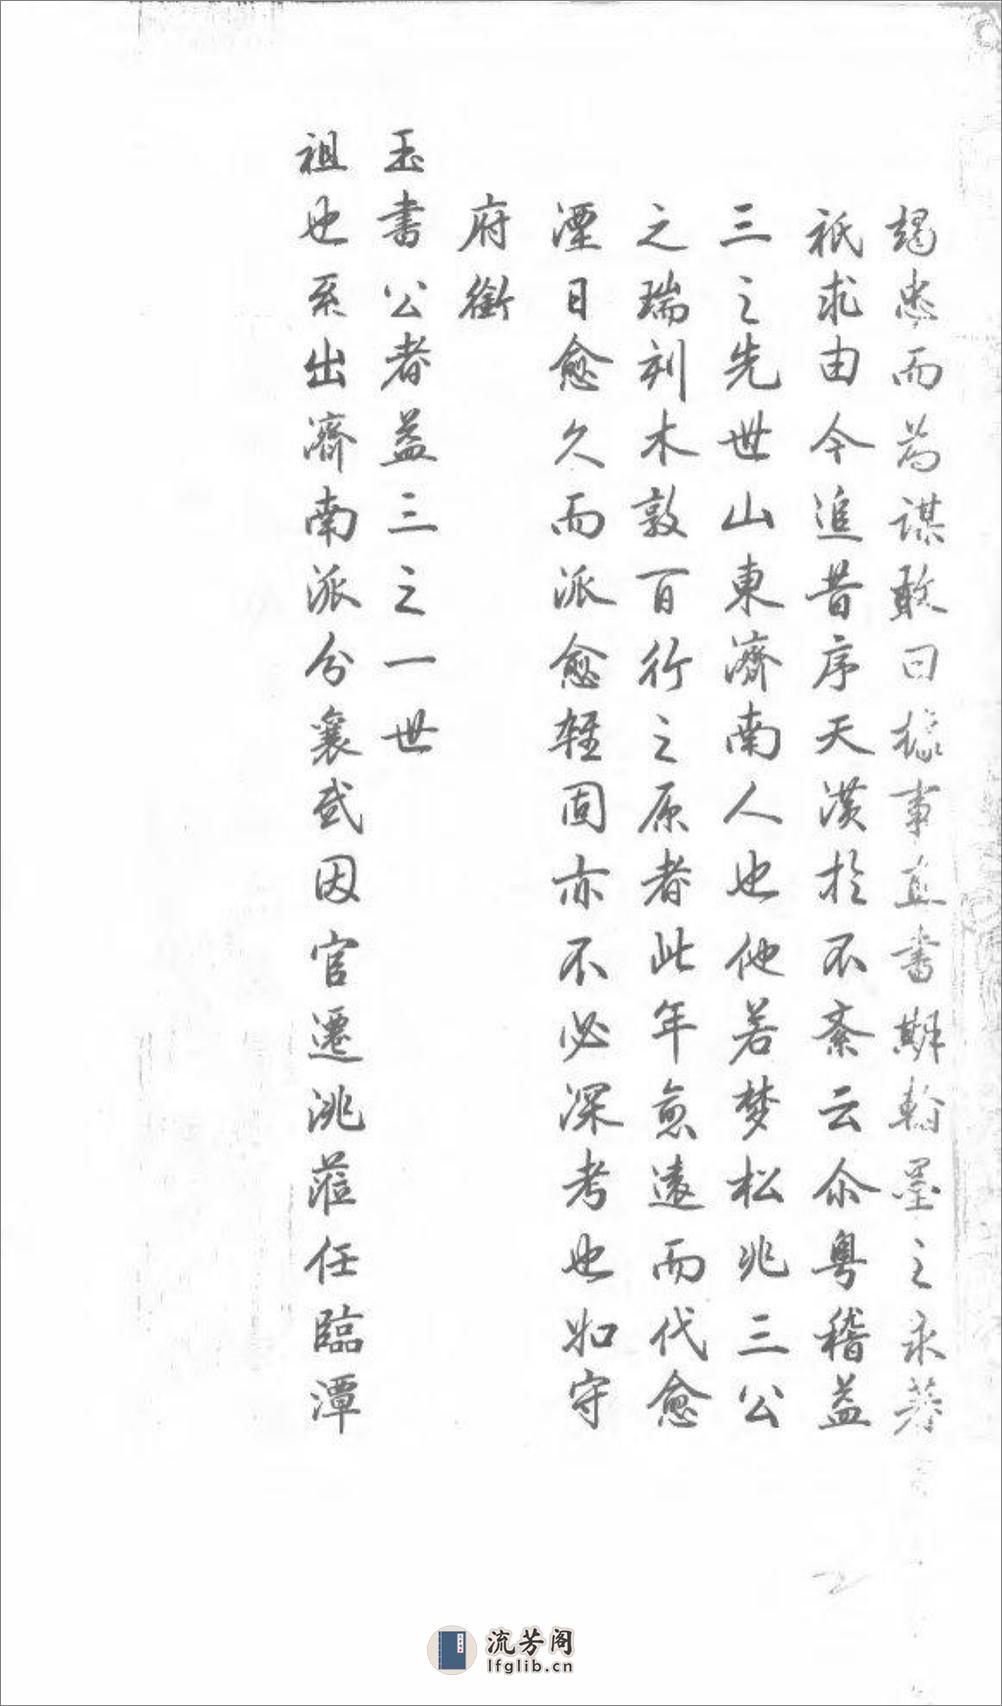 竭忠而為謀敢曰據事直書期翰墨之永著
祇求由今追昔序天潢於不紊云尒粤稽益
三之先世山東濟南人也他若梦松兆三公
之瑞刻木敦百行之原者此年愈遠而代愈
湮日愈久而派愈輕固亦不必深考也如守
府銜
玉書公者益三之一世
祖也系出濟南派分襄武因官遷洮蒞任臨潭
流芳阁
lfglib.cn